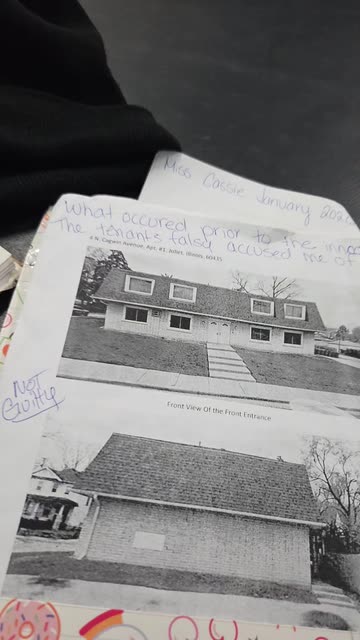 Miss Cassie January
What occured prior to the
The tenants falsy accused me of
N. Capitn Avenue, Apt. #1, Joliet, Illinois, 60435
NOT
Guilty
Front View Of the Front Entrance